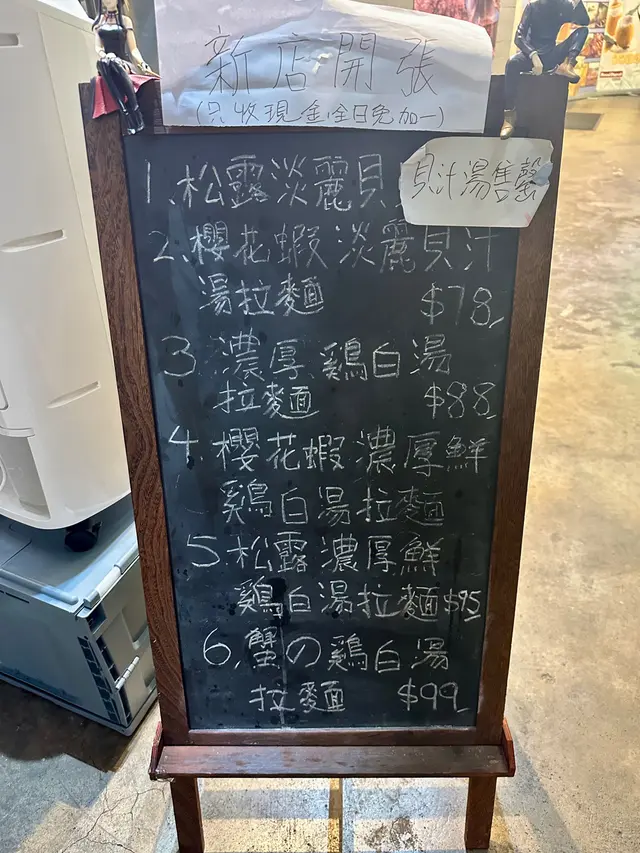 新店開張
(只收現金全日免加一)
1.松露淡麗貝
貝汁湯售罄
2.櫻花蝦淡麗貝汁
湯拉麵 $78
3.濃厚鷄白湯
拉麵 $88
4.櫻花蝦濃厚鮮
鷄白湯拉麵
5.松露濃厚鮮
鷄白湯拉麵$95
6.蟹の鷄白湯
拉麵 $99